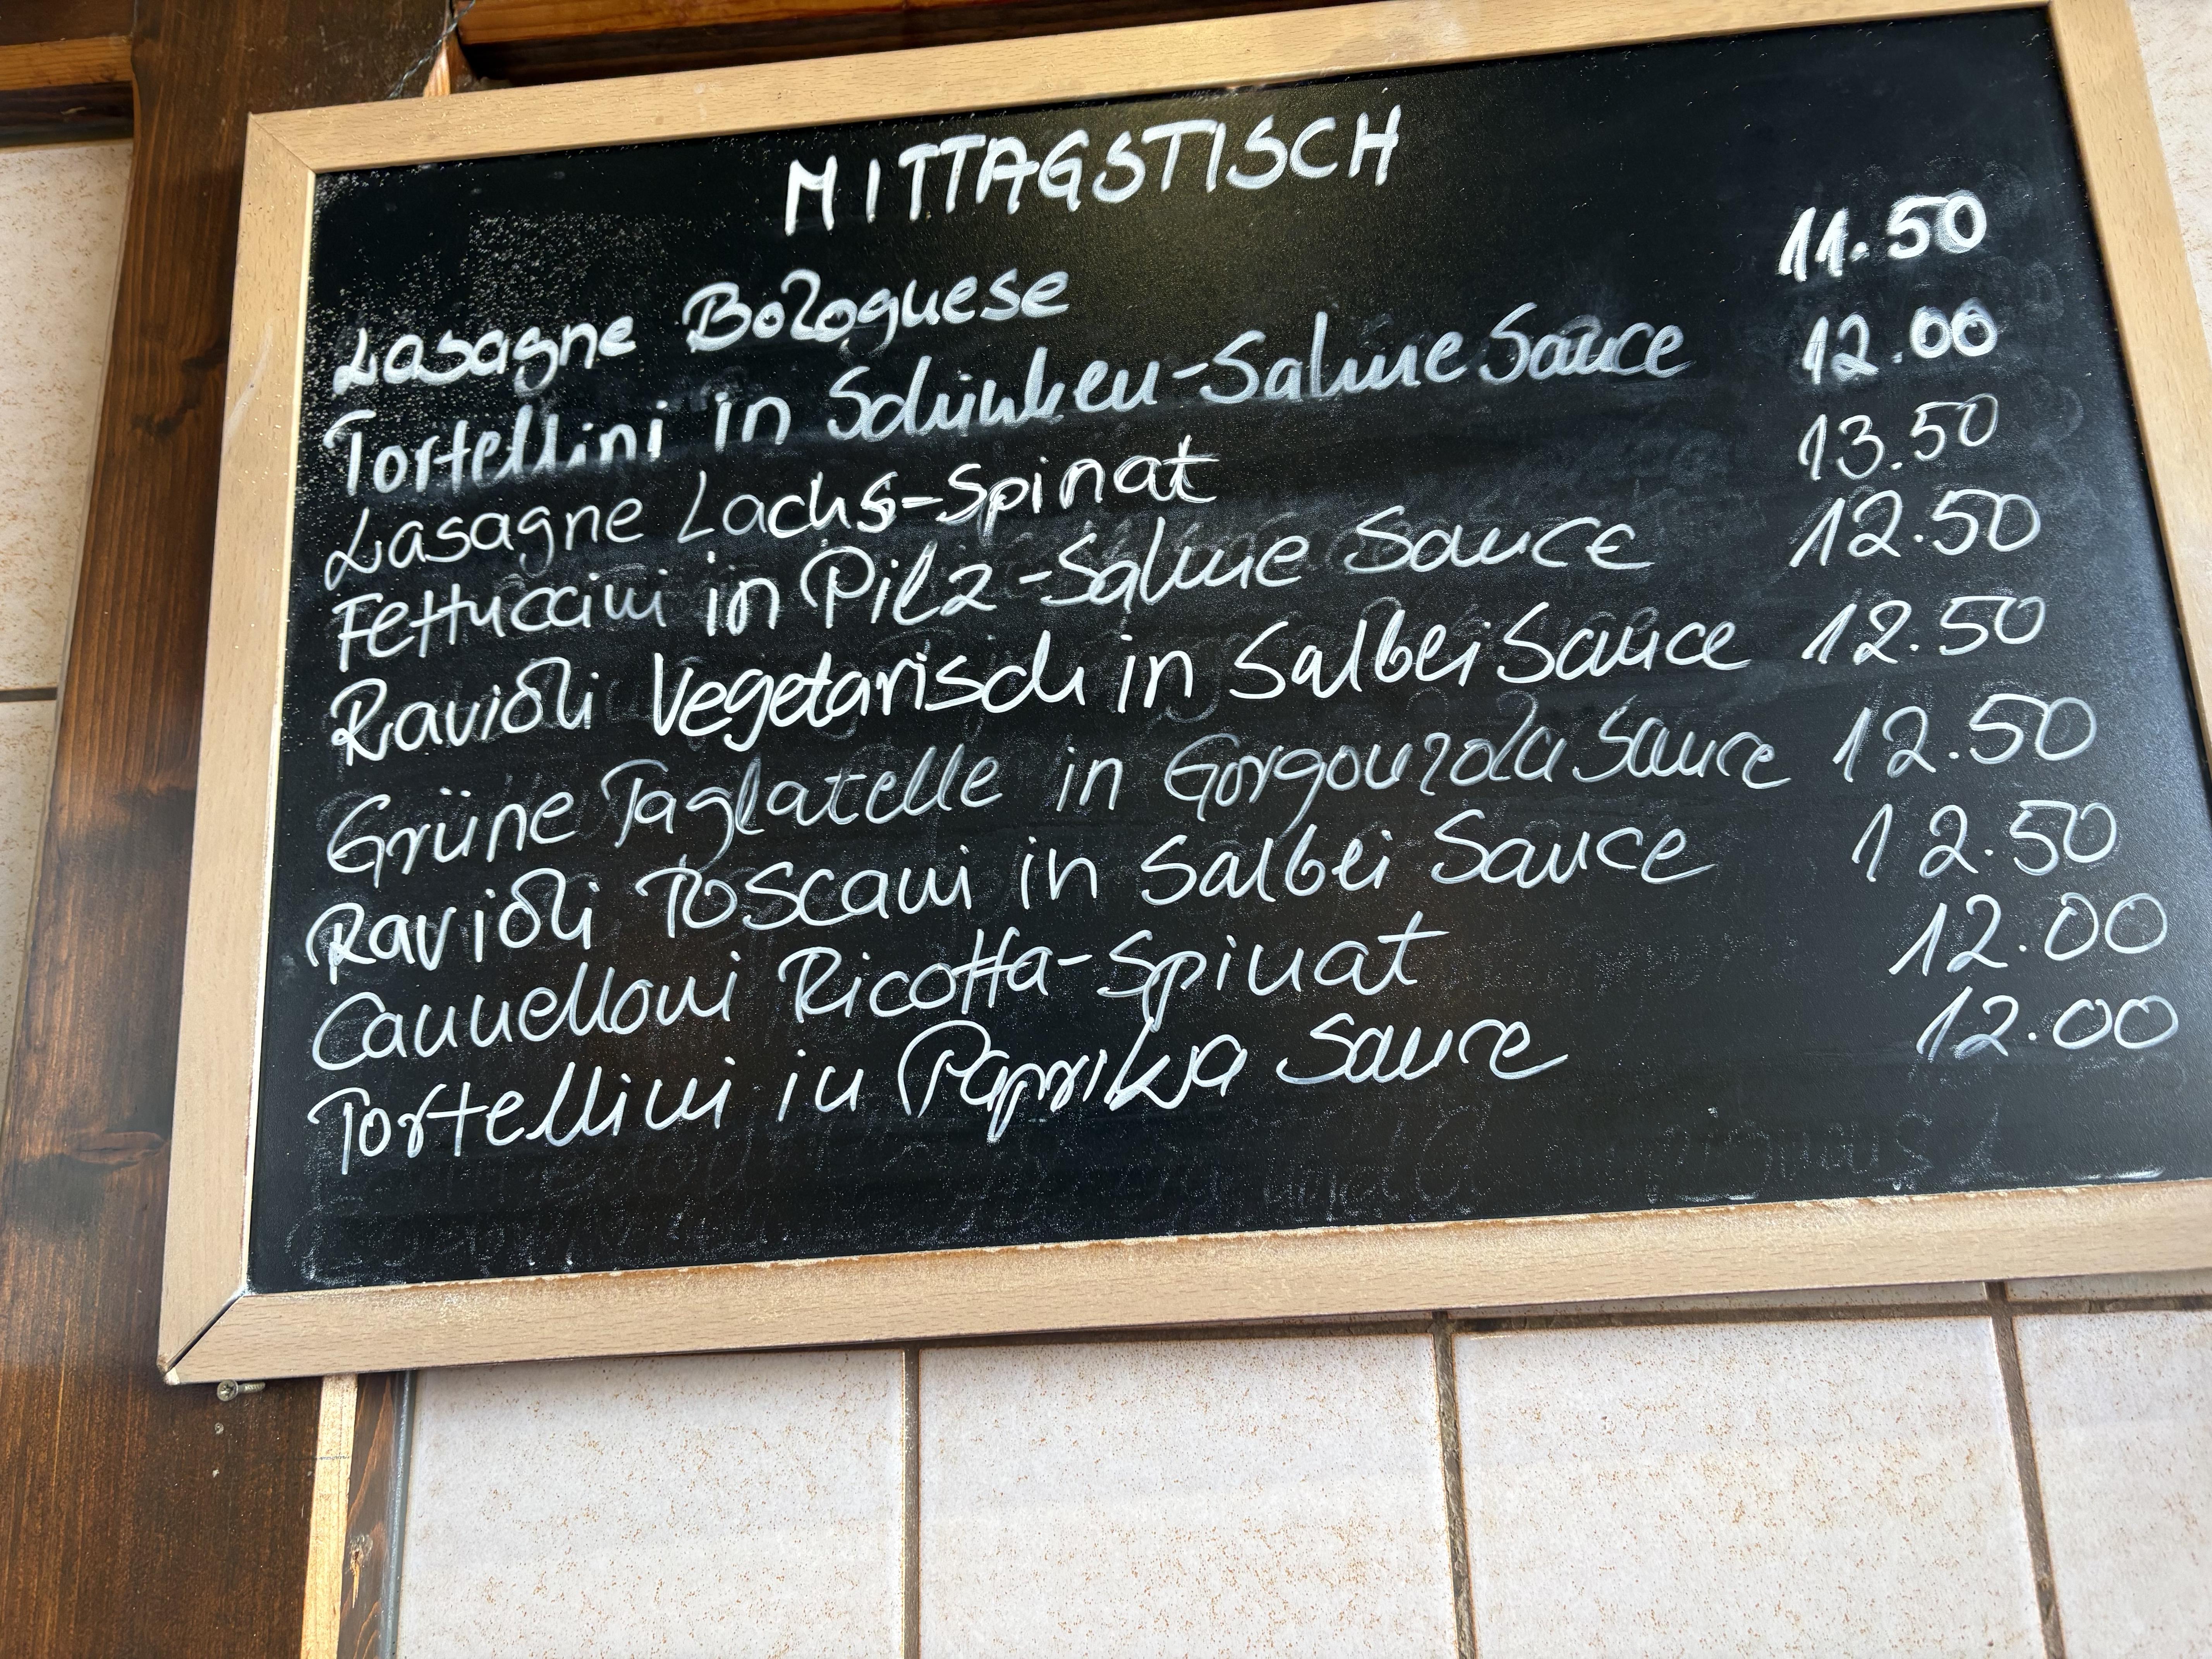 MITTAGSTISCH
Lasagne Bolognese 11.50
Tortellini in Schinken-Sahne Sauce 12.00
Lasagne Lachs-Spinat 13.50
Fettuccini in Pilz-Sahne Sauce 12.50
Ravioli Vegetarisch in Salbei Sauce 12.50
Grüne Taglatelle in Gorgonzola Sauce 12.50
Ravioli Toscani in Salbei Sauce 12.50
Cannelloni Ricotta-Spinat 12.00
Tortellini in Paprika Sauce 12.00